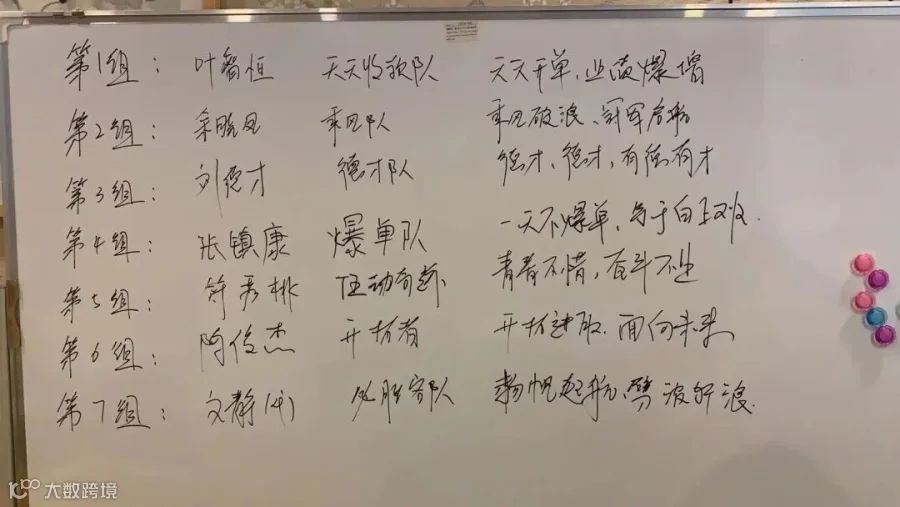 第1组： 叶智恒 天天收款队 天天开单，业绩爆增
第2组： 乘风队 乘风破浪、冠军启航
第3组： 刘德才 德才队 德才，德才，有德有才
第4组： 张镇康 爆单队 一天不爆单，等于白上班.
第5组： 许秀桃 青春不惜，奋斗不止
第6组： 陶俊杰 开拓者 开拓进取.面向未来
第7组： 文静 必胜客队 扬帆起航，劈波斩浪.
大数跨境